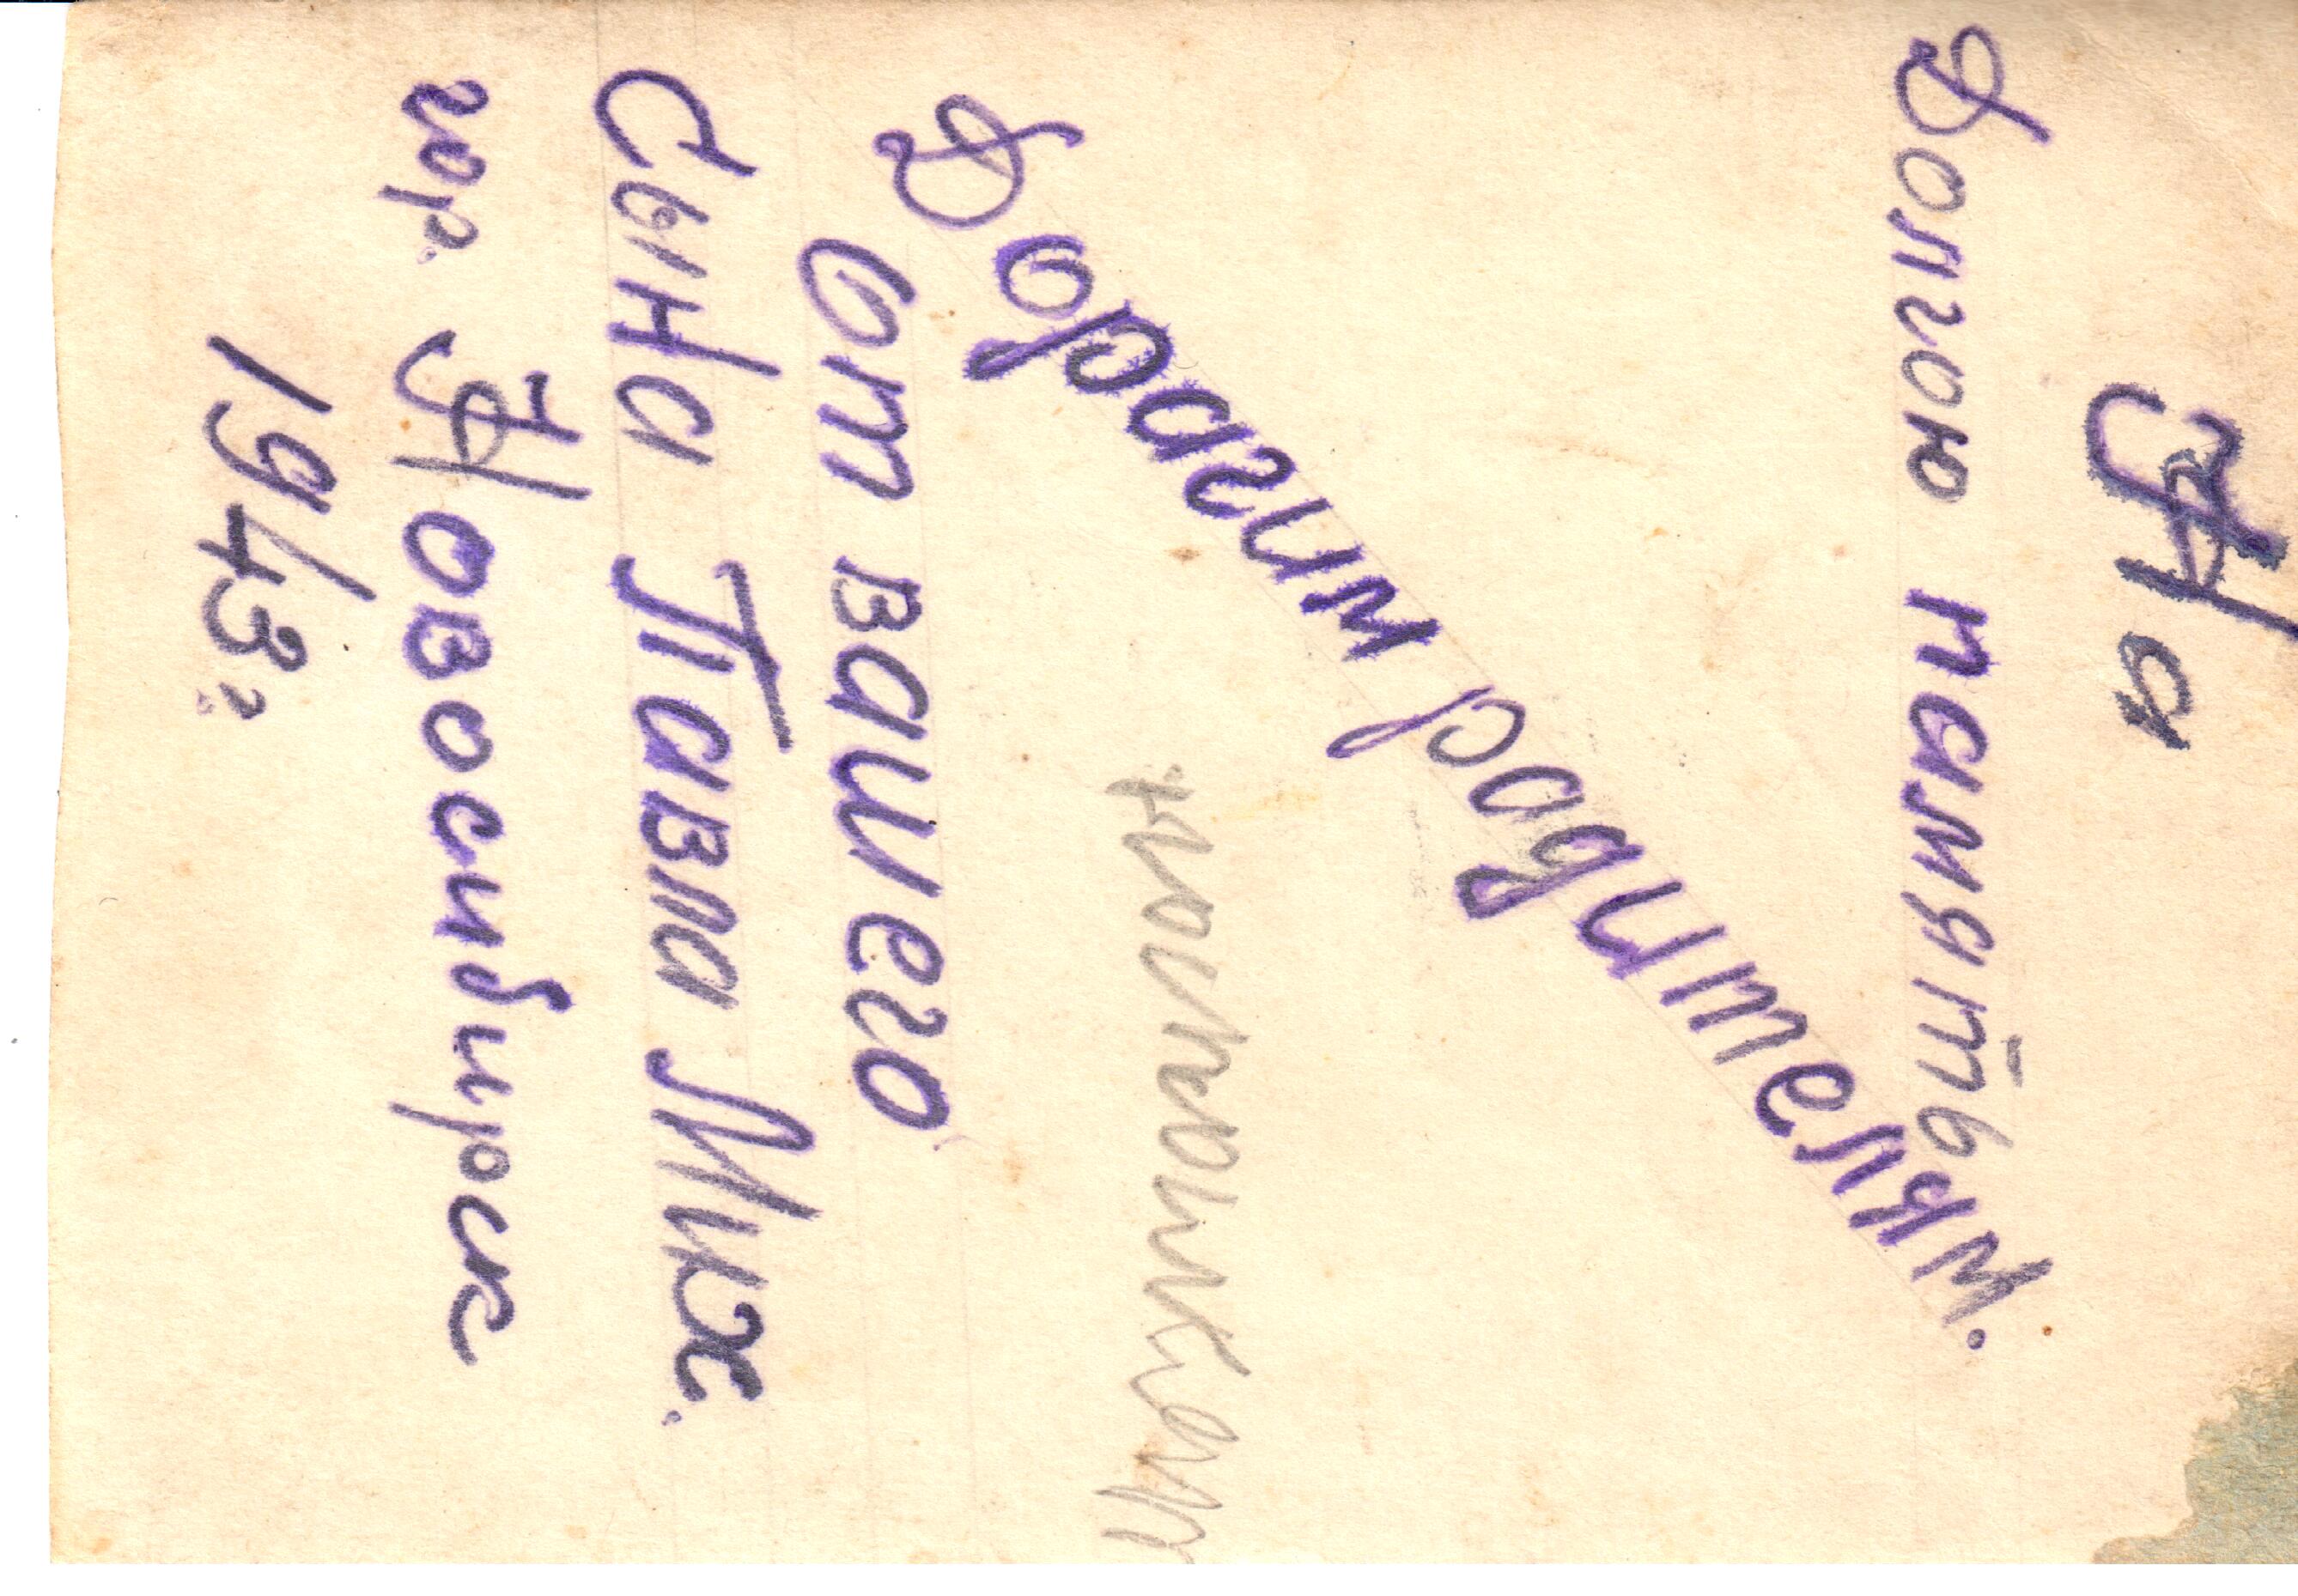 На
Долгою память
Дорагим родителям.
От вашего
Сына Павла Мих.
гор. Новосибирск
1943 г